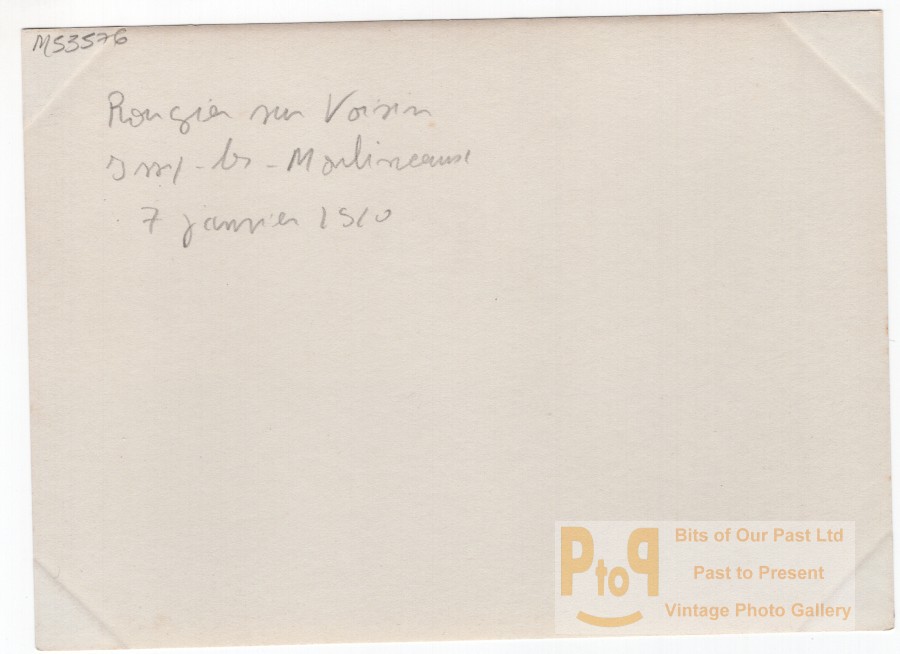 M53576
Rougier sur Voisin
Issy-les-Moulineaux
7 janvier 1910
PtoP
Bits of Our Past Ltd
Past to Present
Vintage Photo Gallery